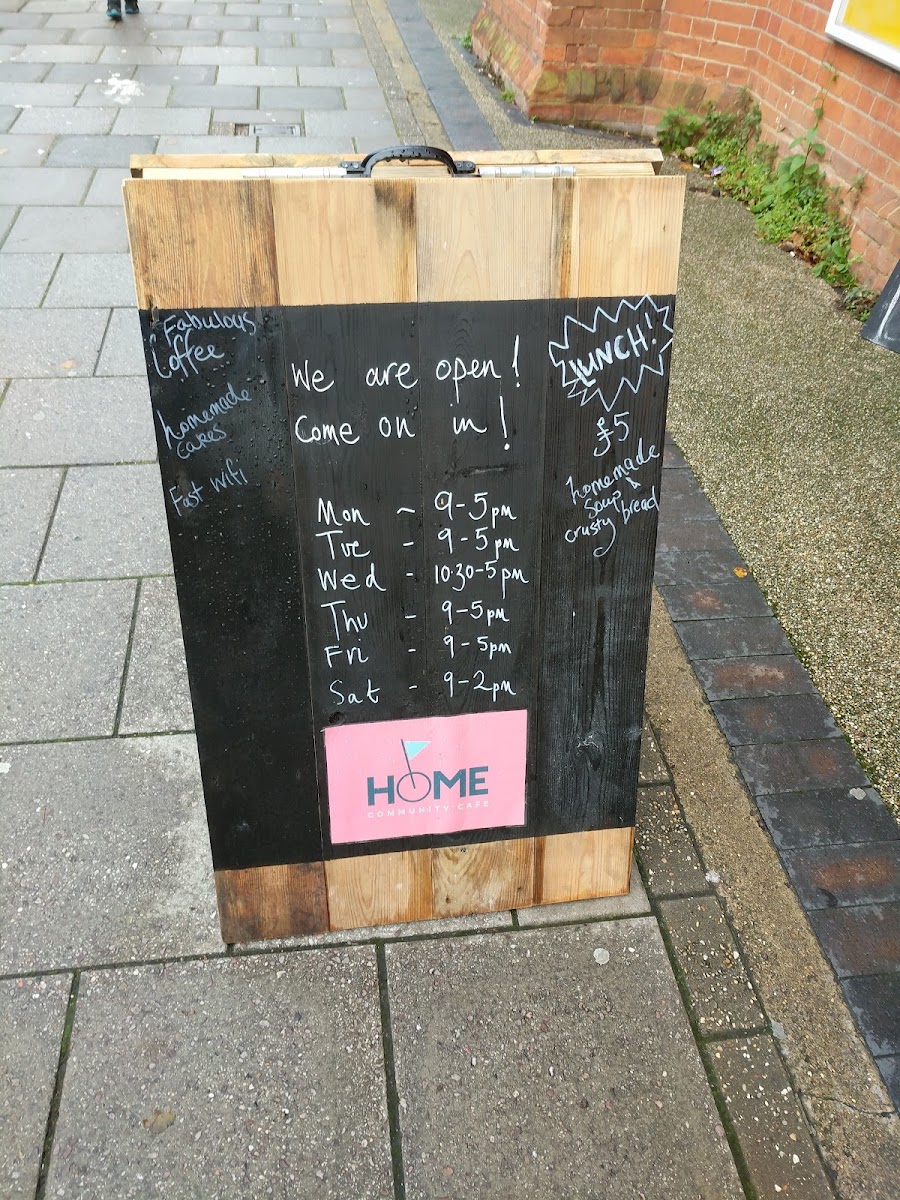 Fabulous
Coffee
homemade
cakes
Fast wifi
We are open!
Come on in!
Mon ~ 9-5pm
Tue - 9-5pm
Wed - 10.30-5pm
Thu - 9-5pm
Fri - 9-5pm
Sat - 9-2pm
LUNCH!
£5
homemade
soup &
crusty bread
HOME
COMMUNITY CAFE